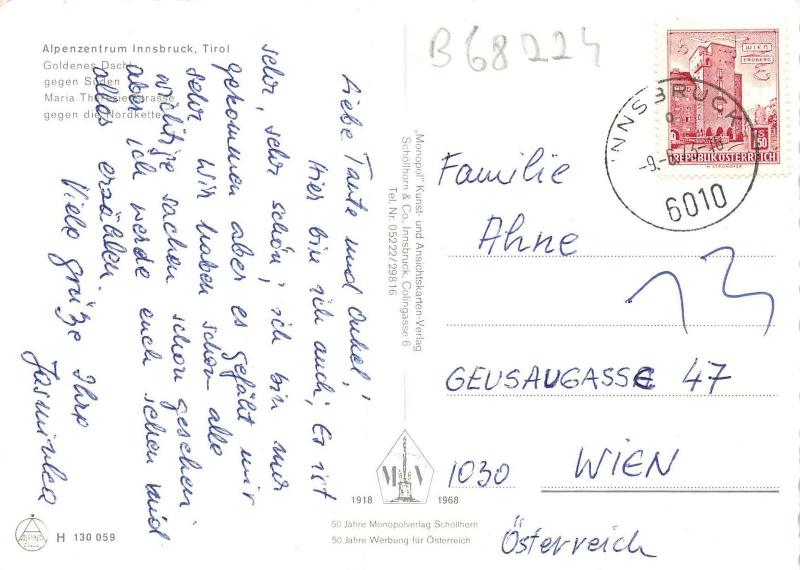 Alpenzentrum Innsbruck, Tirol
Goldenes Dachl
gegen Süden
Maria Theresienstrasse
gegen die Nordkette
Liebe Tante und Onkel,!
Hier bin ich auch; Es ist
sehr, sehr schön; ich bin nur
gekommen aber es gefählt mir
sehr wir haben schon alle
wichtige sachen schon gesehen
aber ich werde euch schen und
alles erzählen.
Viele grüße Ihre
Jasminka
H 130 059
ALPINA
„Monopol" Kunst- und Ansichtskarten-Verlag
Schöllhorn & Co., Innsbruck, Colingasse 6
Tel. Nr. 05222/29816
M V
1918 1968
50 Jahre Monopolverlag Schöllhorn
50 Jahre Werbung für Österreich
B68224
WIEN
ERDBERG
S 1.50
REPUBLIK ÖSTERREICH
INNSBRUCK
6010
Familie
Ahne
13
GEUSAUGASSE 47
1030 WIEN
Österreich